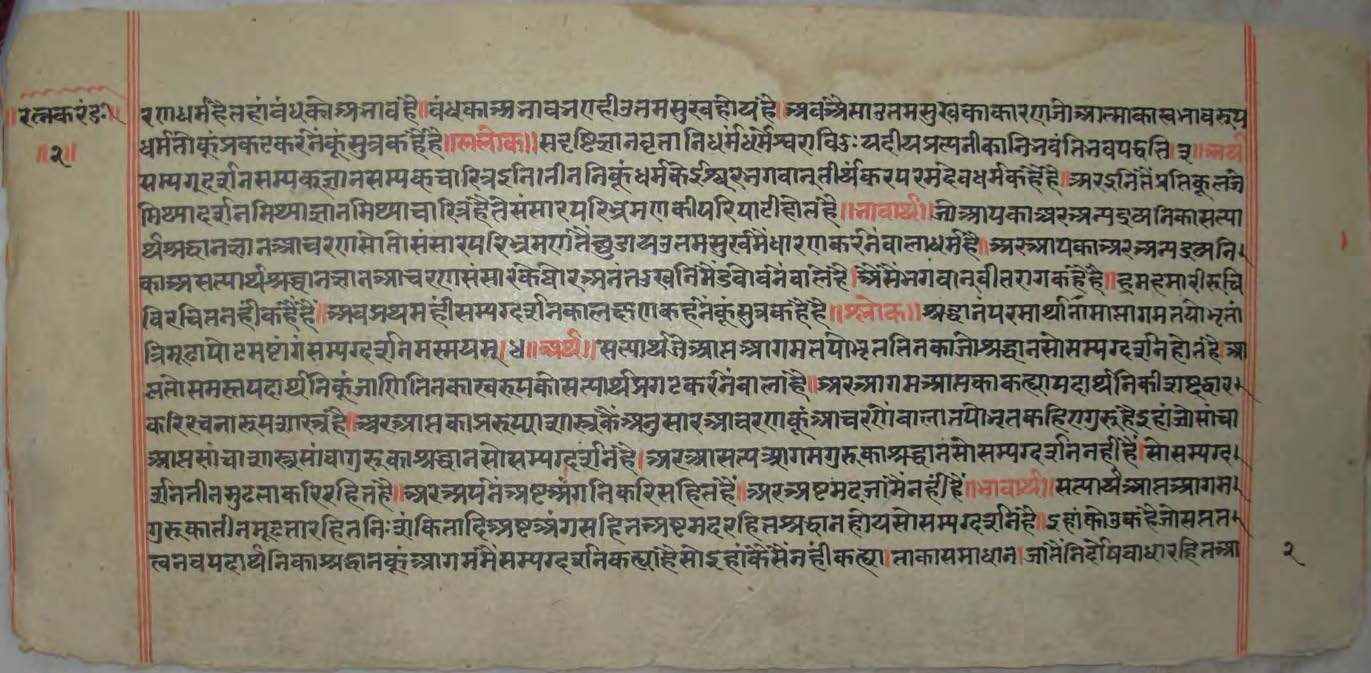 ॥रत्नकरंड॰॥
॥२॥
रणधर्म है तहां बंधका अभाव है॥ बंधका अभाव तही उत्तमसुख होय है॥ अब अैसा उत्तमसुखका कारण जो आत्माका स्वभावरूप
धर्म ताकूं प्रकट करनेकूं सूत्र कहै है॥ श्लोक॥ सदृष्टिज्ञानवृत्तानि धर्मं धर्मेश्वरा विदुः यदीयप्रत्यनीकानि भवंति भवपद्धति ३॥ अर्थ
सम्यग्दर्शन सम्यक्ज्ञान सम्यक्चारित्र इनि तीननिकूं धर्मके ईश्वर भगवान् तीर्थंकर परमदेव धर्म कहै है॥ अर इनितै प्रतिकूल जे
मिथ्यादर्शन मिथ्याज्ञान मिथ्याचारित्र है ते संसारपरिभ्रमणकी परिपाटी होत है॥ भावार्थ॥ जो आपका अर अन्य द्रव्यनिका सत्या
र्थ श्रद्धान ज्ञान आचरण सो तो संसारपरिभ्रमणतै छुडाय उत्तमसुखमै धारण करनेवाला धर्म है॥ अर आपका अर अन्य द्रव्यनि
का असत्यार्थ श्रद्धान ज्ञान आचरण संसारके घोर अनंत दुखनिमै डबोवनेवाले है॥ अैसे भगवान् वीतराग कहै है॥ हम हमारी रुचि
विरचित नही कहै है॥ अब प्रथम ही सम्यग्दर्शनका लक्षण कहनेकूं सूत्र कहै है॥ श्लोक॥ श्रद्धानं परमार्थानामाप्तागमतपोभृतां
त्रिमूढापोढमष्टांगं सम्यग्दर्शनमस्मयम् ४॥ अर्थ॥ सत्यार्थ जे आप्त आगम तपोभृत तिनका जो श्रद्धान सो सम्यग्दर्शन होत है॥ आ
प्त तो समस्त पदार्थनिकूं जाणि तिनका स्वरूपको सत्यार्थ प्रगट करनेवाला है॥ अर आगम आप्तका कह्या पदार्थनिकी शब्दद्वार
करि रचनारूप शास्त्र है॥ अर आप्तका प्ररूप्या शास्त्रकै अनुसार आचरणकूं आचरणेवाला तपोभृत कहिए गुरु है इहां जो सांचा
आप्त सांचा शास्त्र सांचा गुरूका श्रद्धान सो सम्यग्दर्शन है॥ अर असत्य आगम गुरूका श्रद्धान सो सम्यग्दर्शन नही है॥ सो सम्यग्द
र्शन तीन मुढताकरि रहित है॥ अर अपने अष्ट अंगनिकरि सहित है॥ अर अष्ट मद जामै नही है॥ भावार्थ॥ सत्यार्थ आप्त आगम
गुरूका तीन मूढतारहित निःशंकितादि अष्ट अंगसहित अष्ट मदरहित श्रद्धान होय सो सम्यग्दर्शन है॥ इहां कोउ कहै जो सप्त त
त्व नव पदार्थनिका श्रद्धानकूं आगममै सम्यग्दर्शन कह्या है सो इहां कैसै नही कह्या॥ ताका समाधान॥ जातै निर्दोष बाधारहित आ
२